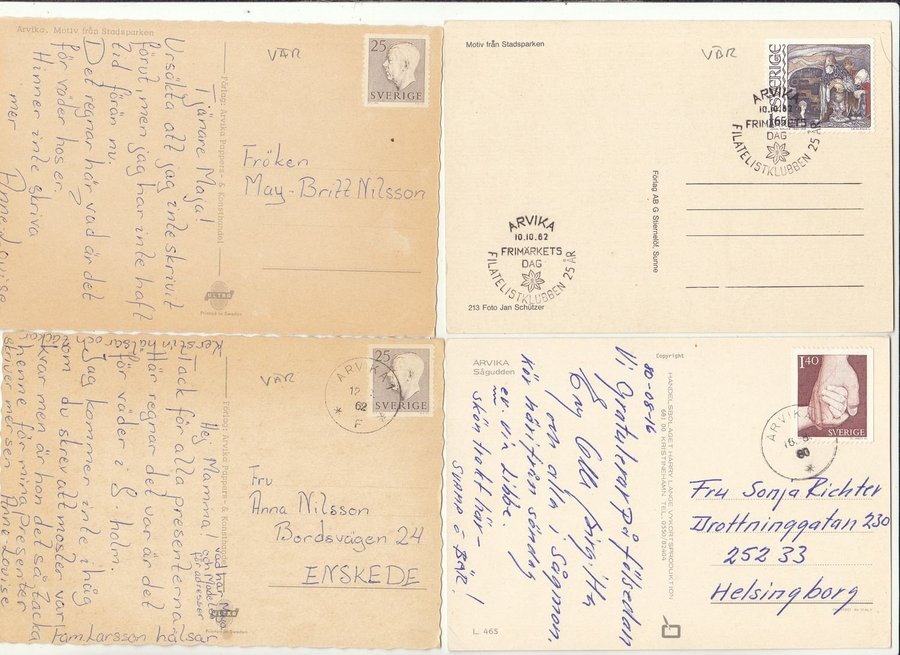 Arvika. Motiv från Stadsparken
VÄR
25
SVERIGE
Tjänare Maja!
Ursäkta att jag inte skrivit
förut, men jag har inte haft
tid förrän nu.
Det regnar här, vad är det
för väder hos er.
Hinner inte skriva
mer
Anne Louise
Förlag: Arvika Pappers- & Konsthandel
ULTRA
Printed in Sweden
Fröken
May-Britt Nilsson
Motiv från Stadsparken
VÄR
SVERIGE
1.65
ARVIKA
10.10.82
FRIMÄRKETS
DAG
FILATELISTKLUBBEN 25 ÅR
ARVIKA
10.10.82
FRIMÄRKETS
DAG
FILATELISTKLUBBEN 25 ÅR
Förlag AB G Sternelöf, Sunne
213 Foto Jan Schützer
VÄR
25
SVERIGE
ARVIKA
12
62
Hej Mamma!
Tack för alla presenterna
Här regnar det var är det
för väder i S. holm.
Jag kommer inte ihåg
om du skrev att moster var
men är hon det så tacka
henne för mina presenter
skriver mer sen Anne Louise
Fam. Larsson hälsar
Kerstin hälsar
Förlag: Arvika Pappers- & Konsthandel
Printed in Sweden
Fru
Anna Nilsson
Bordsvägen 24
ENSKEDE
ARVIKA
Sågudden
Copyright
1.40
SVERIGE
ARVIKA
80
80-08-16
Vi Gratulerar på födsedan
Eny Olle Birgitta
och alla i Sågmon.
Kör härifrån söndag
ev. via Dibbe.
skön trakt här -
Sunne o BÄR!
HANDELSBOLAGET HARRY LANGE VYKORTSPRODUKTION
681 00 KRISTINEHAMN TEL. 0550/82404
Fru Sonja Richter
Drottninggatan 230
252 33
Helsingborg
L. 465